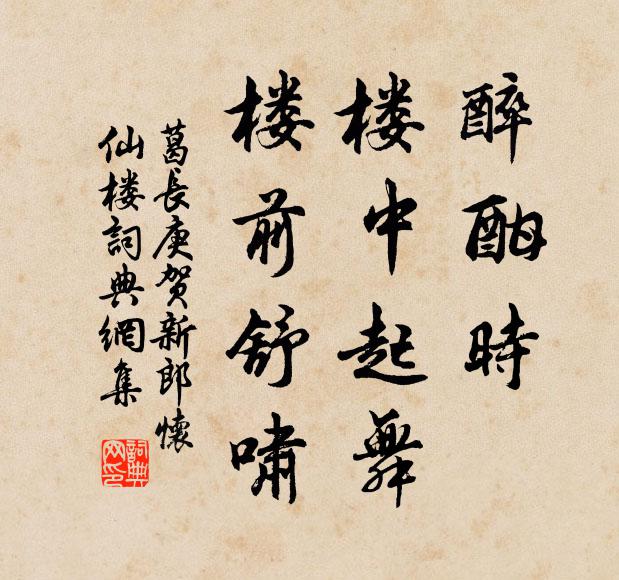 醉酣時
楼中起舞
楼前舒嘯
葛長庚贺新郎懷
仙楼詞典網集
詞典网印